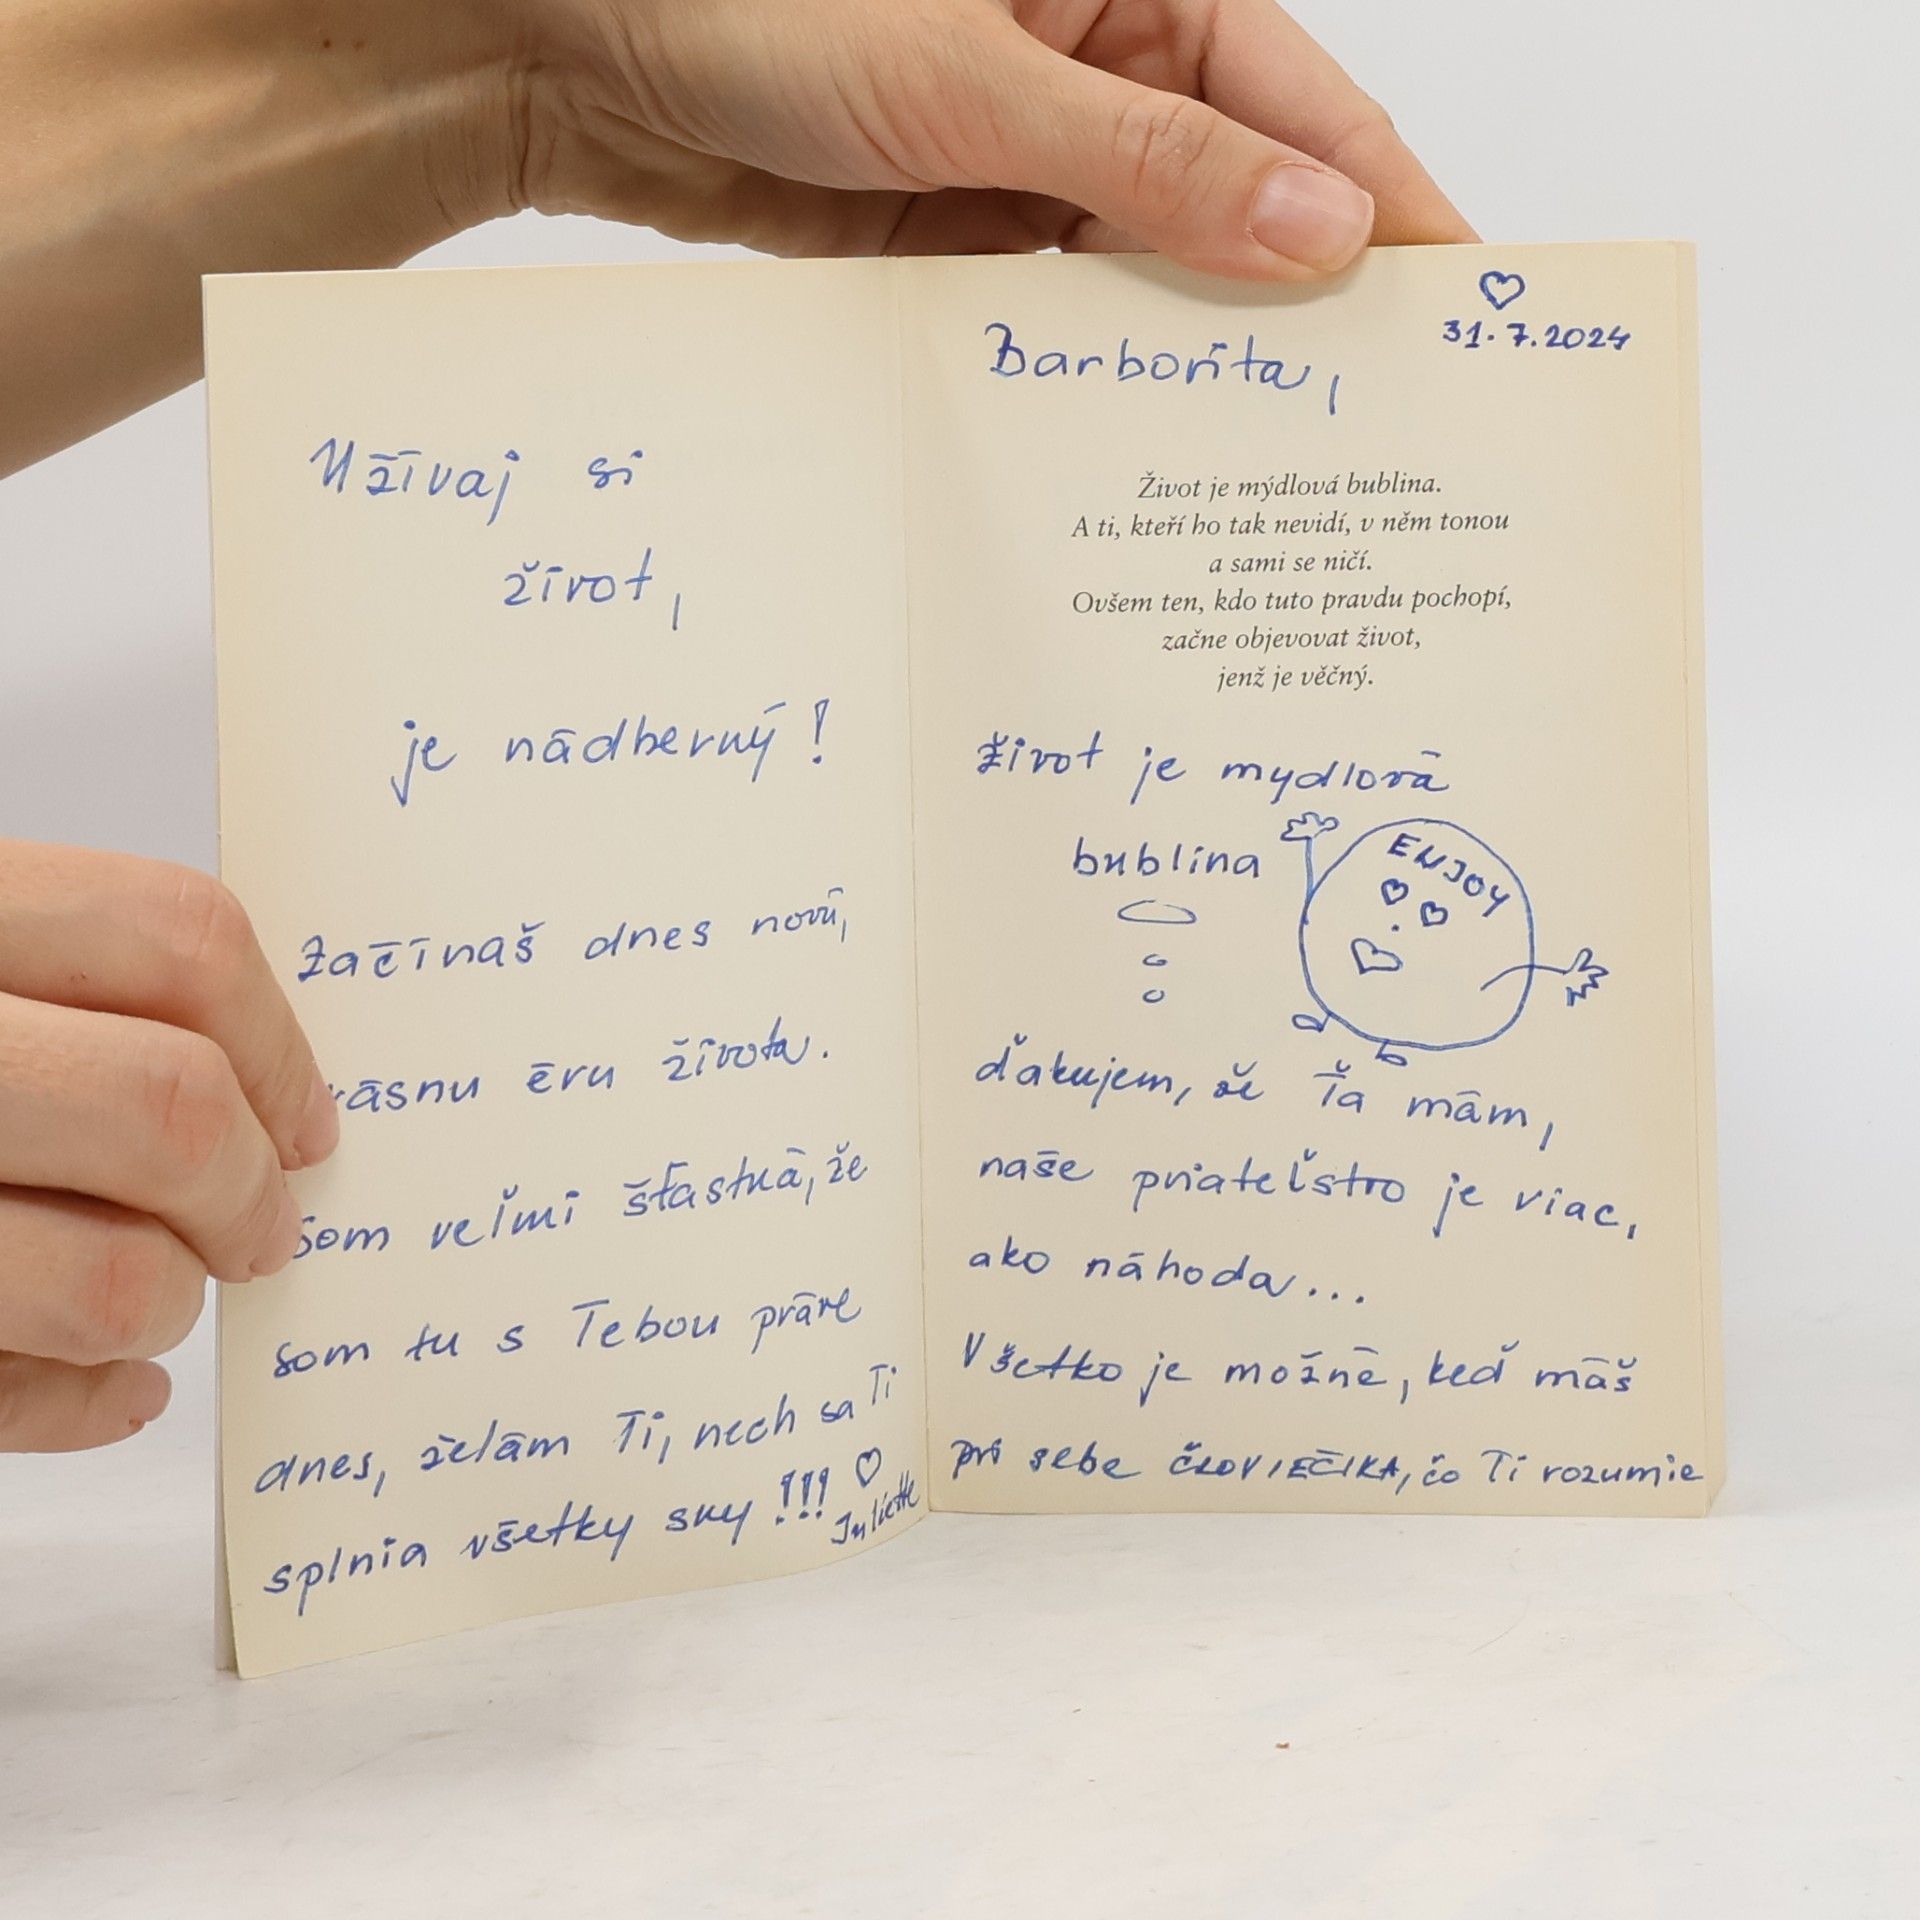 Užívaj si
život,
je nádherný!
Začínaš dnes novú,
krásnu éru života.
Som veľmi šťastná, že
som tu s Tebou práve
dnes, želám Ti, nech sa Ti
splnia všetky sny!!! ♡
Juliette
♡
31.7.2024
Barborita,
Život je mýdlová bublina.
A ti, kteří ho tak nevidí, v něm tonou
a sami se ničí.
Ovšem ten, kdo tuto pravdu pochopí,
začne objevovat život,
jenž je věčný.
život je mydlová
bublina
ENJOY
ďakujem, že Ťa mám,
naše priateľstvo je viac,
ako náhoda...
Všetko je možné, keď máš
pri sebe ČLOVIEČIKA, čo Ti rozumie